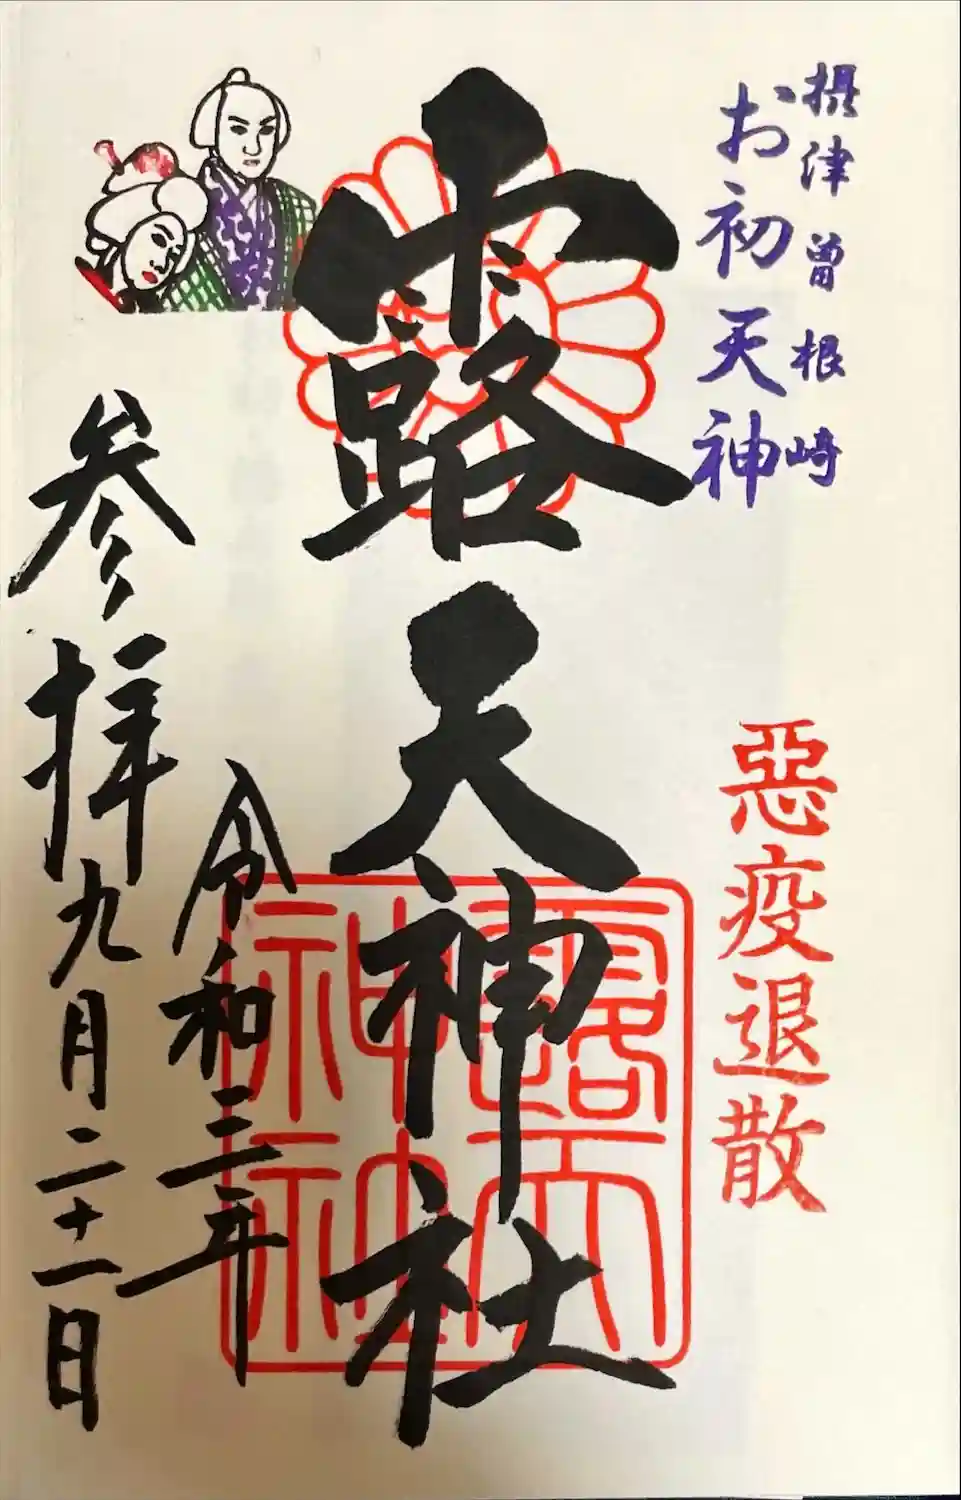 摂津曽根崎
お初天神
悪疫退散
露天神社
露天
神社
令和三年
参拝九月二十一日